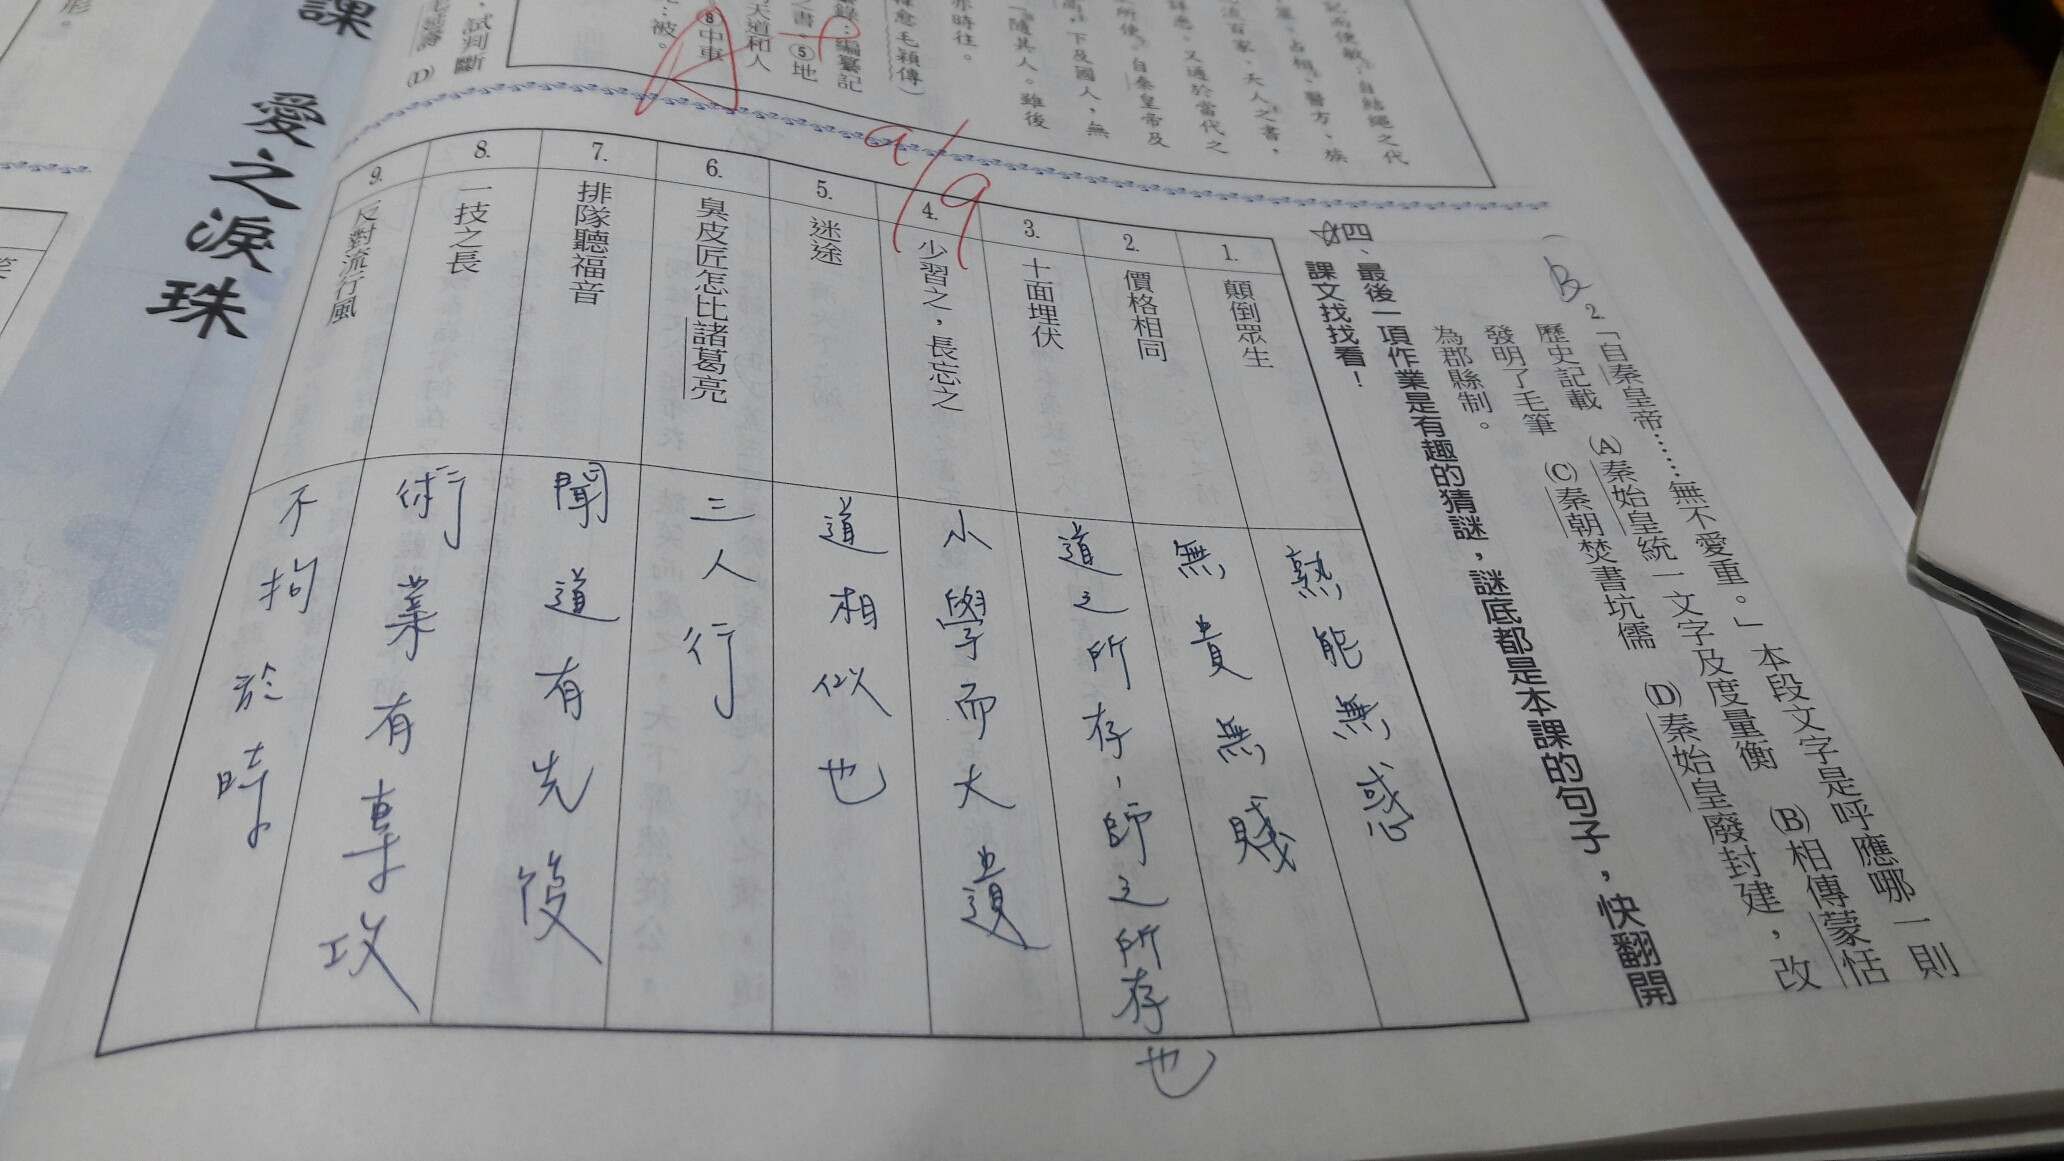 課　愛之淚珠
形。
，試判斷
(D)
記而便敏，自結繩之代
、占相、醫方、族
百家、天人之書，
詳悉。又通於當代之
所使。自秦皇帝及
，下及國人，無
「隨其人。雖後
亦時往。
韓愈毛穎傳）
錄：編纂記
書。⑤地
天道和人
⑧中車
：被。
A+
9/9
B
2.「自秦皇帝……無不愛重。」本段文字是呼應哪一則
歷史記載　(A)秦始皇統一文字及度量衡　(B)相傳蒙恬
發明了毛筆　(C)秦朝焚書坑儒　(D)秦始皇廢封建，改
為郡縣制。
☆四、最後一項作業是有趣的猜謎，謎底都是本課的句子，快翻開
課文找找看！
1. 顛倒眾生 熟能無惑
2. 價格相同 無貴無賤
3. 十面埋伏 道之所存，師之所存也
4. 少習之，長忘之 小學而大遺
5. 迷途 道相似也
6. 臭皮匠怎比諸葛亮 三人行
7. 排隊聽福音 聞道有先後
8. 一技之長 術業有專攻
9. 反對流行風 不拘於時